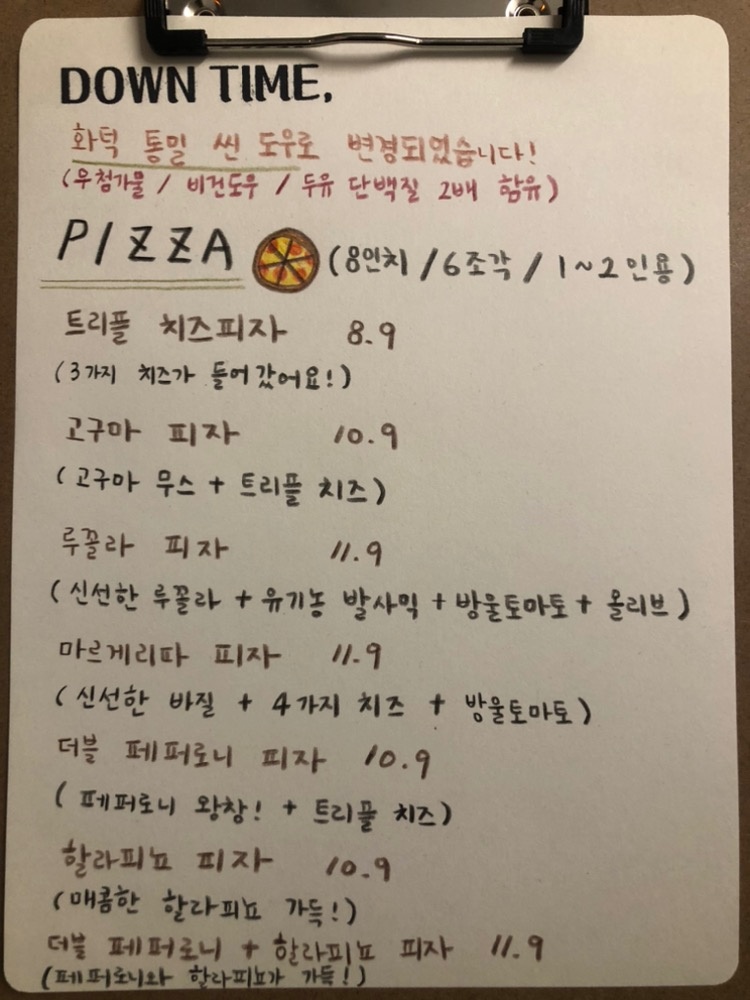 DOWN TIME,
화덕 통밀 씬 도우로 변경되었습니다!
(무첨가물 / 비건도우 / 두유 단백질 2배 함유)
PIZZA (8인치 / 6조각 / 1~2인용)
트리플 치즈피자 8.9
(3가지 치즈가 들어갔어요!)
고구마 피자 10.9
(고구마 무스 + 트리플 치즈)
루꼴라 피자 11.9
(신선한 루꼴라 + 유기농 발사믹 + 방울토마토 + 올리브)
마르게리따 피자 11.9
(신선한 바질 + 4가지 치즈 + 방울토마토)
더블 페퍼로니 피자 10.9
(페퍼로니 왕창! + 트리플 치즈)
할라피뇨 피자 10.9
(매콤한 할라피뇨 가득!)
더블 페퍼로니 + 할라피뇨 피자 11.9
(페퍼로니와 할라피뇨가 가득!)